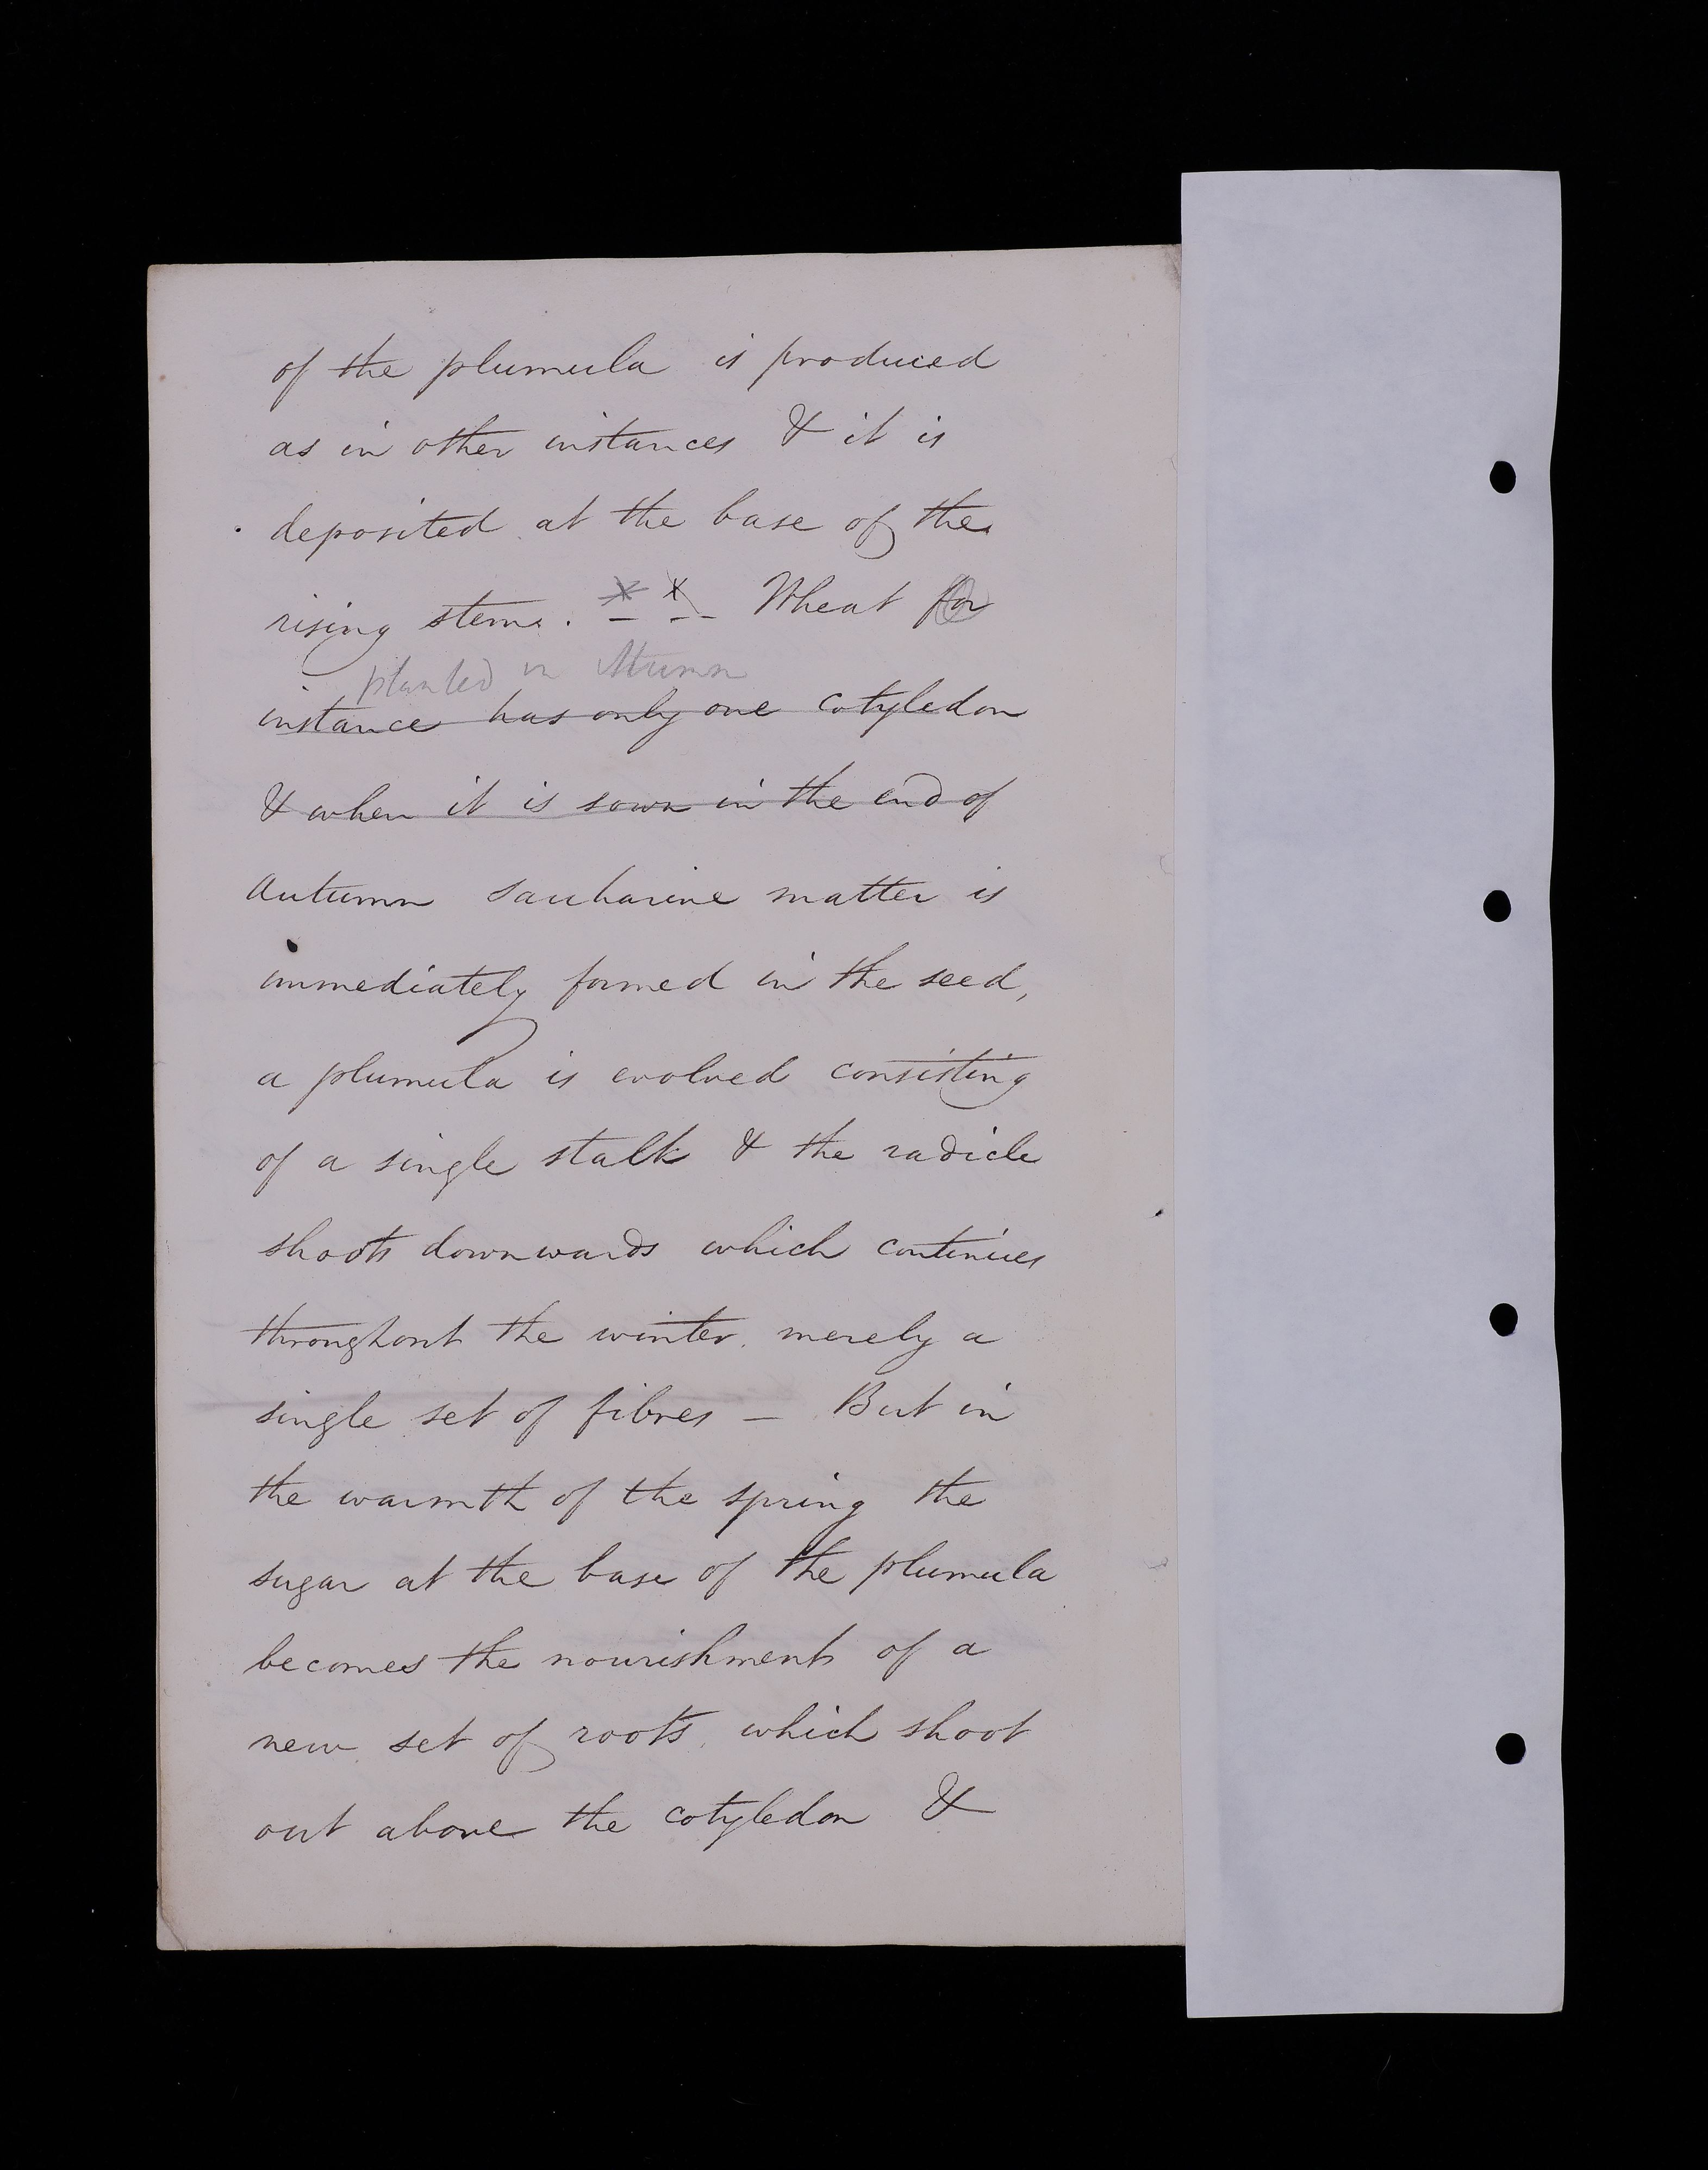 of the plumula is produced
as in other instances & it is
deposited at the base of the
rising stem. * x - - - Wheat for
planted in Atumn
instance has only one cotyledon
& when it is sown in the end of
Autumn saccharine matter is
immediately formed in the seed,
a plumula is evolved consisting
of a single stalk & the radicle
shoots downwards which continues
throughout the winter. merely a
single set of fibres — But in
the warmth of the spring the
sugar at the base of the plumula
becomes the nourishment of a
new set of roots, which shoot
out above the cotyledon &